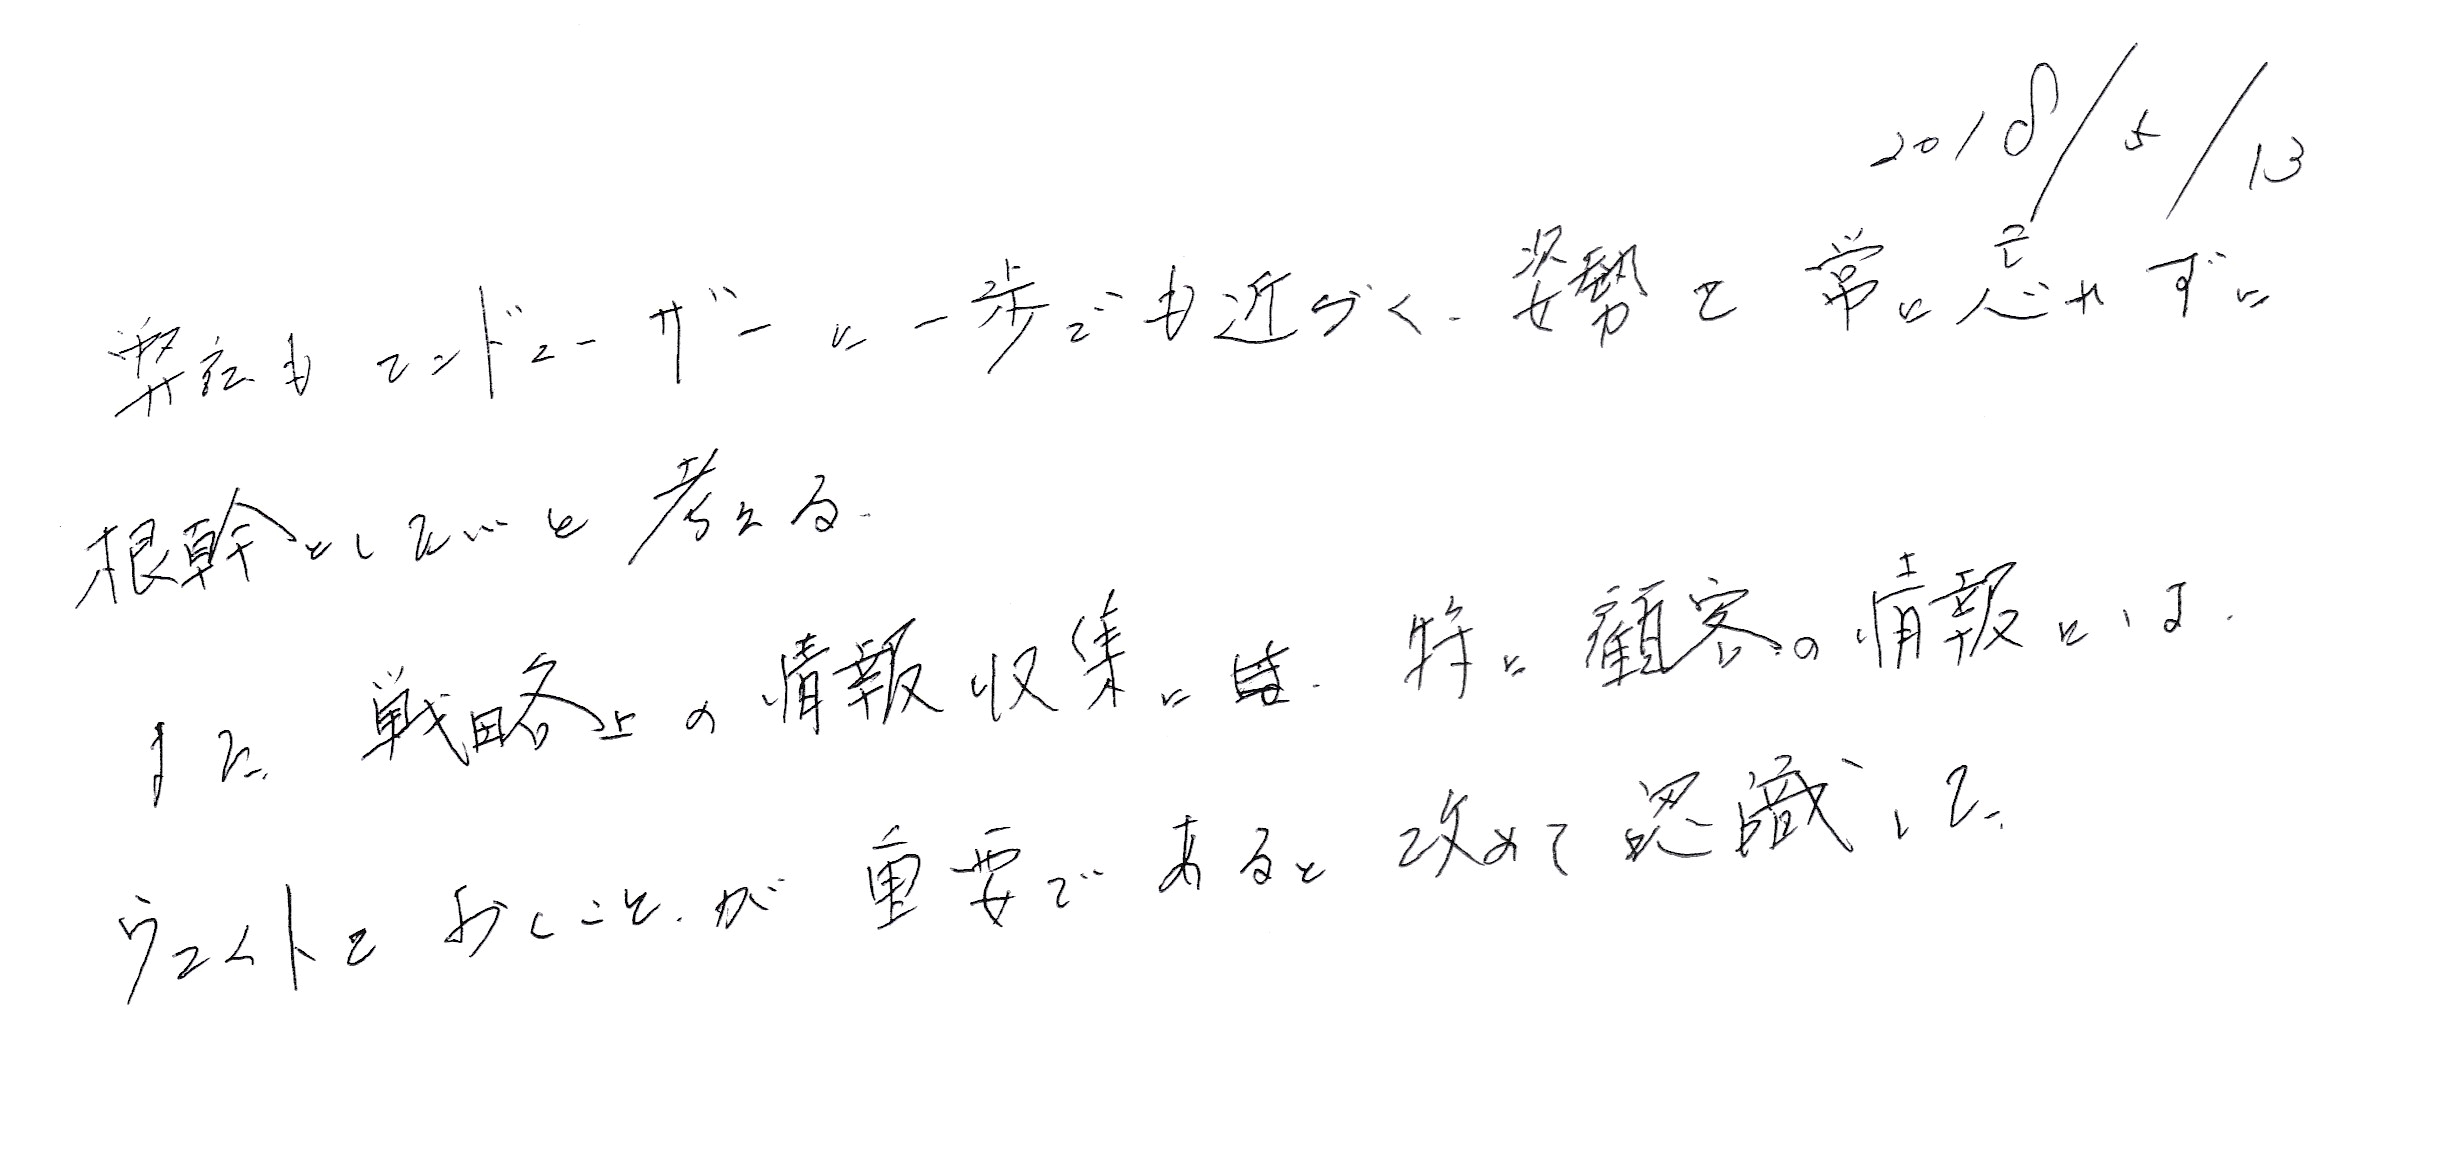 2018/5/13
弊社もエンドユーザーに一歩でも近づく、姿勢を常に忘れずに
根幹としたいと考える。
また戦略上の情報収集には、特に顧客の情報には、
ウエイトをおくことが重要であると改めて認識した。